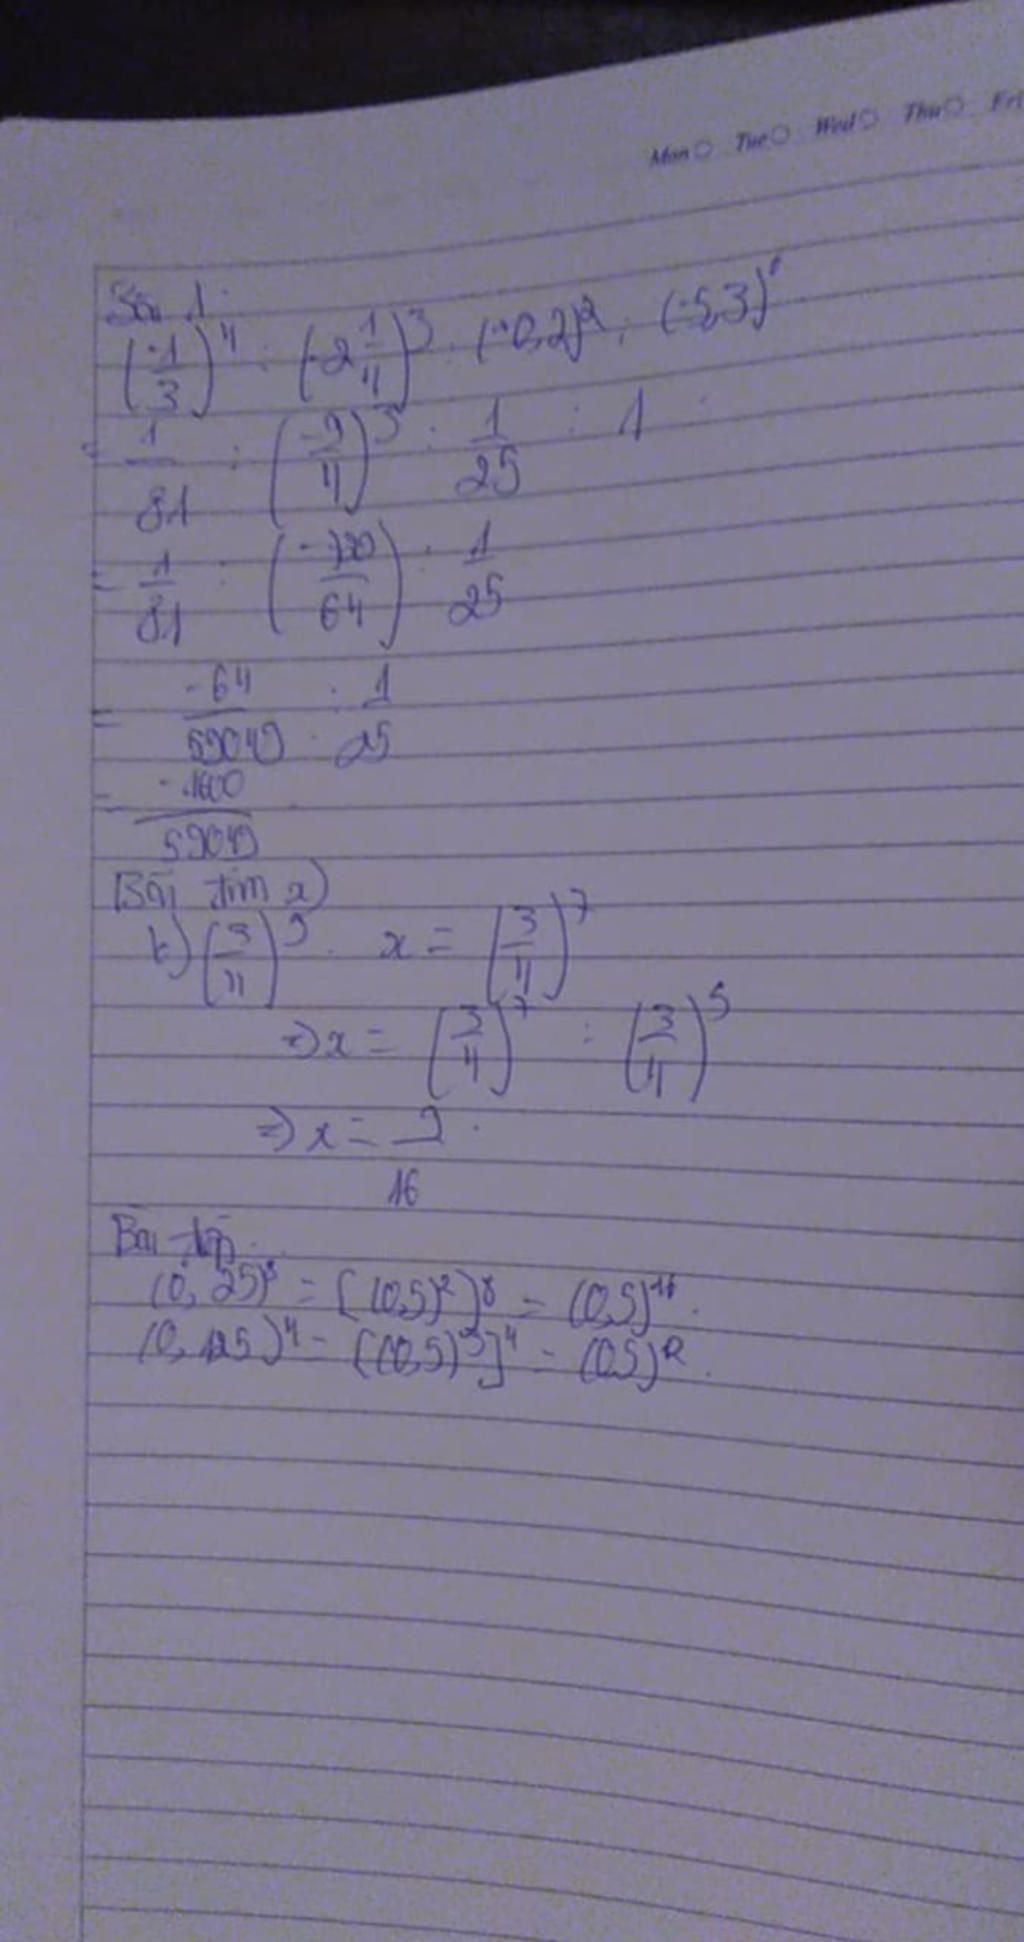 Mon Tue Wed Thu Fri
Bài 1:
(-1/3)^4 : (-2 1/4)^3 : (-0,2)^2 ; (-5,3)^0
= 1/81 : (-9/4)^3 : 1/25 : 1
= 1/81 : (/64) : 1/25
= -64/59049 : 1/25
= -1600/59049
Bài tìm x)
b) (3/4)^5 . x = (3/4)^7
=> x = (3/4)^7 : (3/4)^5
=> x = 9/16
Bài
(0,25)^8 = [(0,5)^2)^8 = (0,5)^16.
(0,125)^4 = [(0,5)^3]^4 = (0,5)^12.